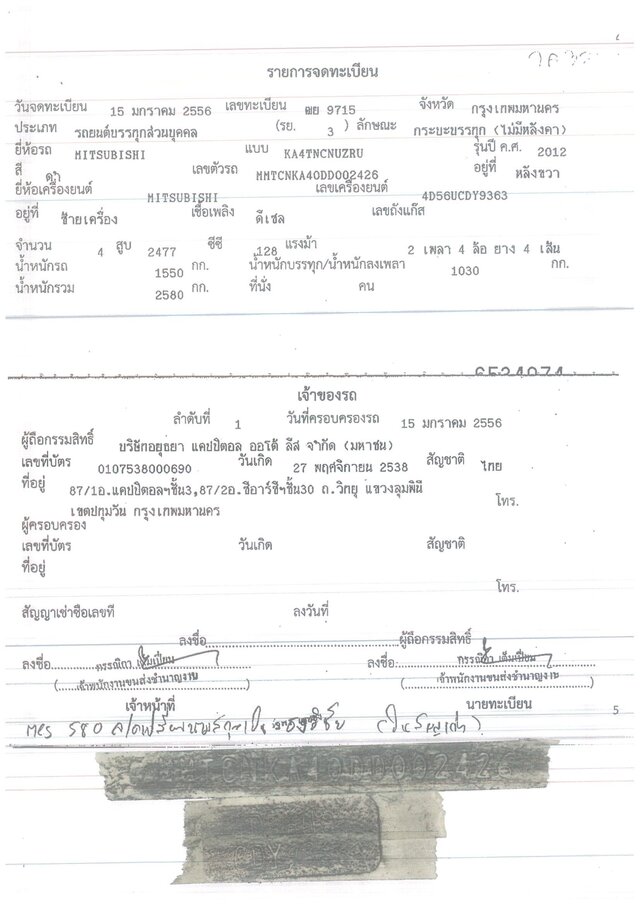 รายการจดทะเบียน
วันจดทะเบียน 15 มกราคม 2556 เลขทะเบียน ฒย 9715 จังหวัด กรุงเทพมหานคร
ประเภท รถยนต์บรรทุกส่วนบุคคล (รย. 3 ) ลักษณะ กระบะบรรทุก (ไม่มีหลังคา)
ยี่ห้อรถ MITSUBISHI แบบ KA4TNCNUZRU รุ่นปี ค.ศ. 2012
สี ดำ เลขตัวรถ MMTCNKA40DD002426 อยู่ที่ หลังขวา
ยี่ห้อเครื่องยนต์ MITSUBISHI เลขเครื่องยนต์ 4D56UCDY9363
อยู่ที่ ซ้ายเครื่อง เชื้อเพลิง ดีเซล เลขถังแก๊ส
จำนวน 4 สูบ 2477 ซีซี 128 แรงม้า 2 เพลา 4 ล้อ ยาง 4 เส้น
น้ำหนักรถ 1550 กก. น้ำหนักบรรทุก/น้ำหนักลงเพลา 1030 กก.
น้ำหนักรวม 2580 กก. ที่นั่ง คน
6534074
เจ้าของรถ
ลำดับที่ 1 วันที่ครอบครองรถ 15 มกราคม 2556
ผู้ถือกรรมสิทธิ์ บริษัทอยุธยา แคปปิตอล ออโต้ ลีส จำกัด (มหาชน)
เลขที่บัตร 0107538000690 วันเกิด 27 พฤศจิกายน 2538 สัญชาติ ไทย
ที่อยู่ 87/1อ.แคปปิตอลฯชั้น3,87/2อ.ซีอาร์ซีฯชั้น30 ถ.วิทยุ แขวงลุมพินี
โทร.
เขตปทุมวัน กรุงเทพมหานคร
ผู้ครอบครอง
เลขที่บัตร วันเกิด สัญชาติ
ที่อยู่
โทร.
สัญญาเช่าซื้อเลขที่ ลงวันที่
ลงชื่อ ผู้ถือกรรมสิทธิ์
ลงชื่อ กรรณิกา เต็มเปี่ยม ลงชื่อ กรรณิกา เต็มเปี่ยม
(เจ้าพนักงานขนส่งชำนาญงาน) (เจ้าพนักงานขนส่งชำนาญงาน)
เจ้าหน้าที่ นายทะเบียน
5